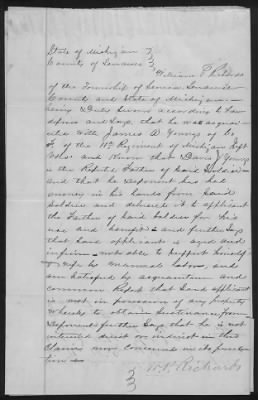 State of Michigan }
County of Lenawee }
William P Richards
of the Township of Seneca Lenawee
County and State of Michigan
being Duly Sworn according to Law
deposes and Says, that he was acquain
ted with James D Youngs of Co
of the 11th Regiment of Michigan
and Know that David Youngs
is the Reputed Father of said Soldier
and that he deponent has had
money in his hands from said
Soldier and delivered it to applicant
the Father of said Soldier for his
use and benefit and further Says
that said applicant is aged and
infirm not able to support himself
by manual labor, and
am Satisfied by acquaintance and
common Report that said applicant
is not in possession of any property
whereby to obtain Sustenance from
Deponent further Says that he is not
interested direct or indirect in this
Claim nor concerned in its prosecu
tion
W. P. Richards
3